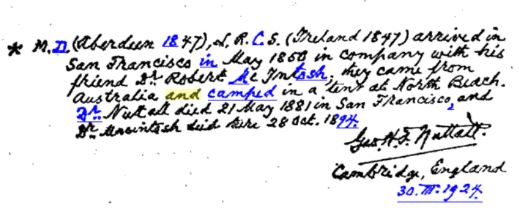 * M.D. (Aberdeen 1847), L.R.C.S. (Ireland 1847) arrived in
San Francisco in May 1850 in company with his
friend Dr. Robert McIntosh, they came from
Australia and camped in a tent at North Beach.
Dr. Nuttall died 21 May 1881 in San Francisco, and
Dr. Macintosh died here 28 Oct. 1894.
Geo. H. F. Nuttall.
Cambridge, England
30.III.1927.